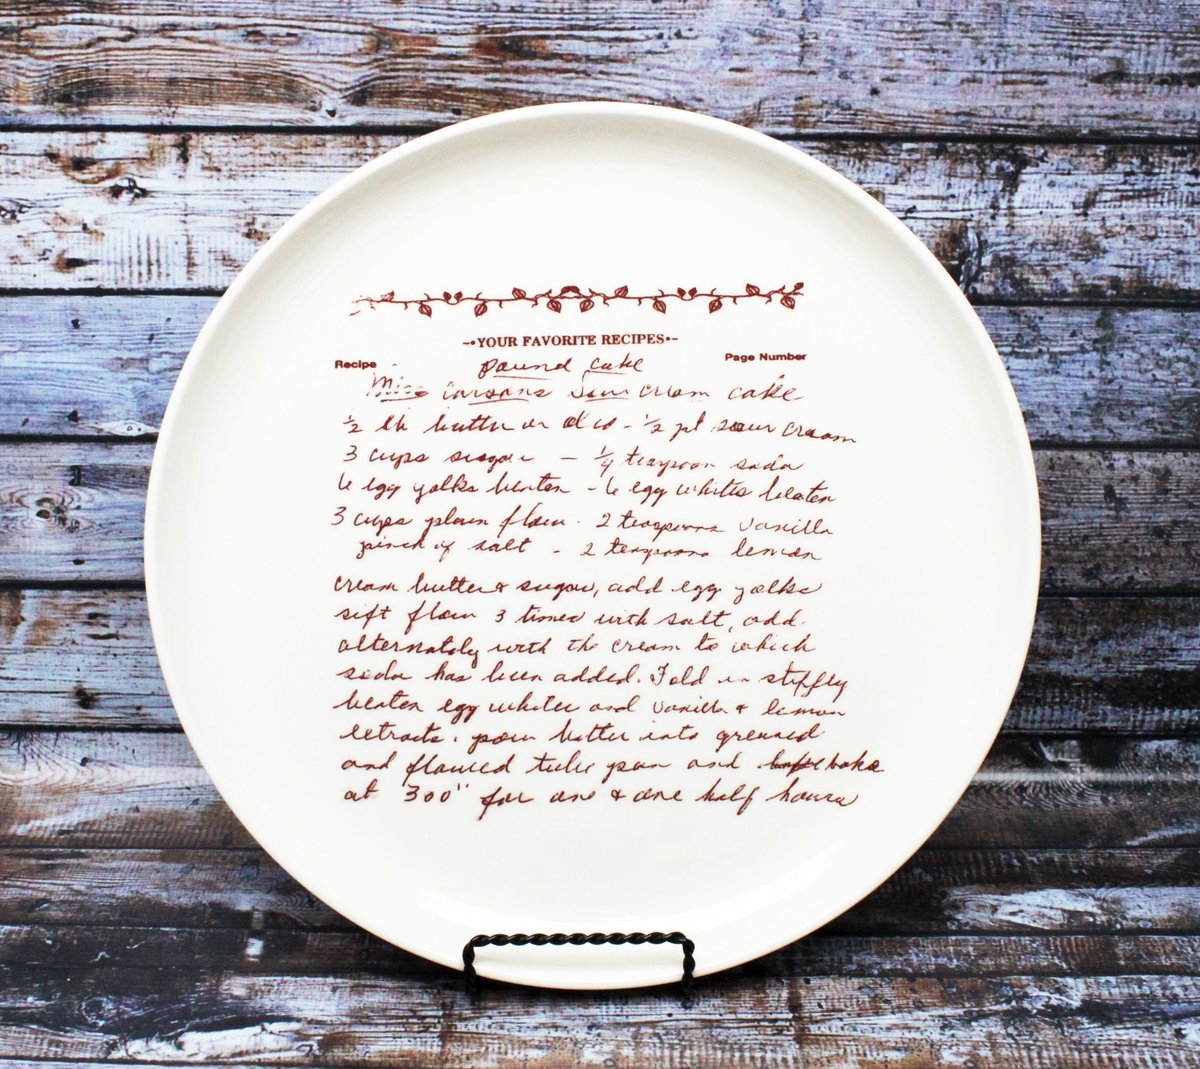 -•YOUR FAVORITE RECIPES•-
Recipe Pound Cake Page Number
Miss Carsons Sour Cream cake
½ lb butter or oleo - ½ pt sour cream
3 cups sugar - ¼ teaspoon soda
6 egg yolks beaten - 6 egg whites beaten
3 cups plain flour - 2 teaspoons vanilla
pinch of salt - 2 teaspoons lemon
cream butter & sugar, add egg yolks
sift flour 3 times with salt, add
alternately with the cream to which
soda has been added. Fold in stiffley
beaten egg whites and vanilla & lemon
extracts. pour batter into greased
and floured tube pan and bake
at 300° for one & one half hours